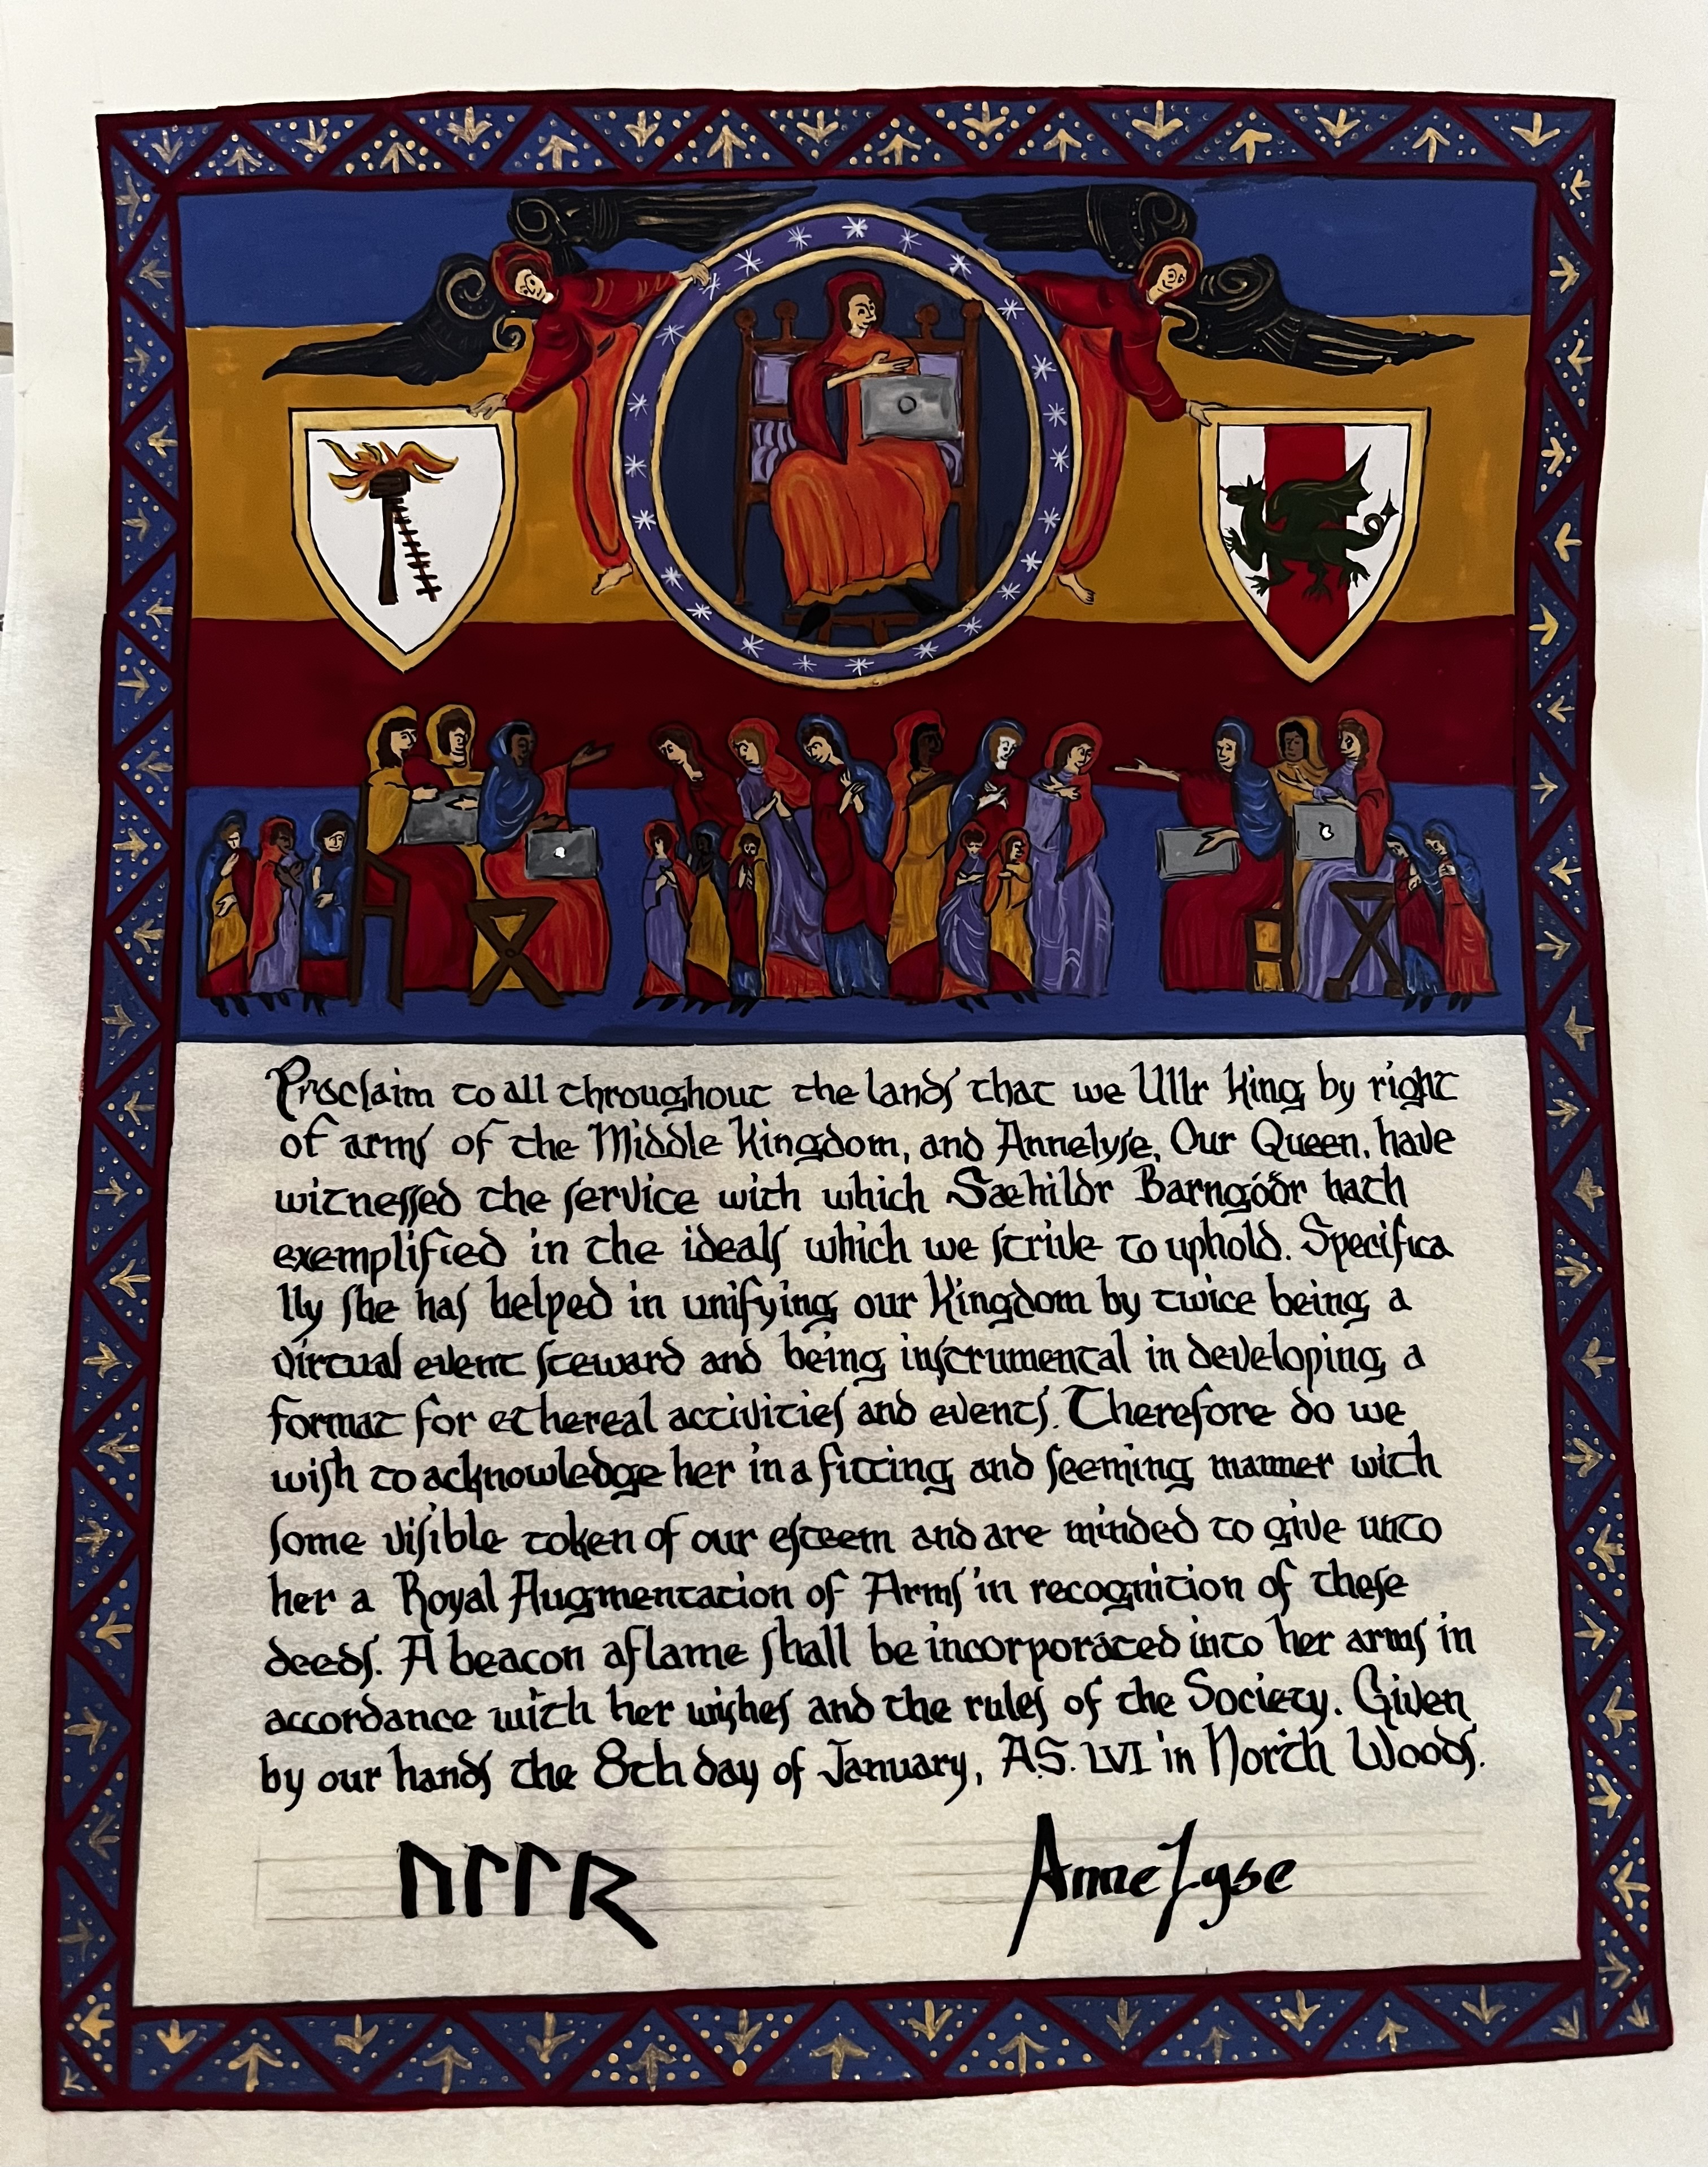 Proclaim to all throughout the lands that we Ullr King by right
of arms of the Middle Kingdom, and Annelyse, Our Queen, have
witnessed the service with which Sæhildr Barngóðr hath
exemplified in the ideals which we strive to uphold. Specifica
lly she has helped in unifying our Kingdom by twice being a
virtual event steward and being instrumental in developing a
format for ethereal activities and events. Therefore do we
wish to acknowledge her in a fitting and seeming manner with
some visible token of our esteem and are minded to give unto
her a Royal Augmentation of Arms in recognition of these
deeds. A beacon aflame shall be incorporated into her arms in
accordance with her wishes and the rules of the Society. Given
by our hands the 8th day of January, A.S. LVI in North Woods.
ᚢᛚᛚᚱ AnneLyse